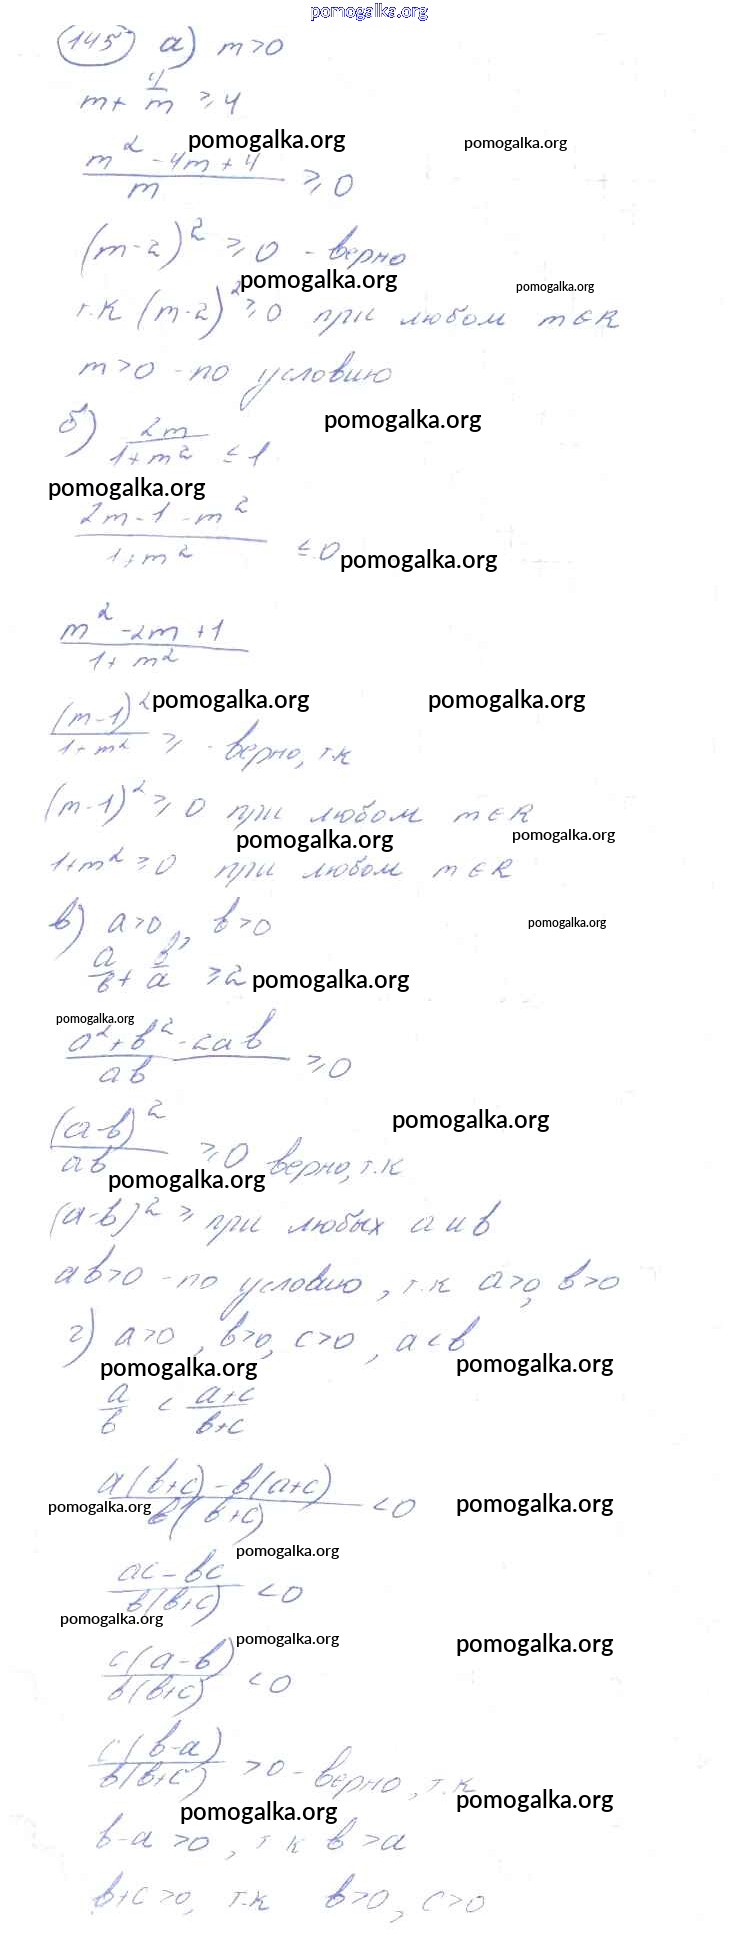 pomogalka.org
145 а) m>0
m+ 4/m ≥4
pomogalka.org pomogalka.org
m² -4m+4 / m ≥0
(m-2)² ≥0 - верно
pomogalka.org pomogalka.org
т.к (m-2)² ≥0 при любом m∈R
m>0 -по условию
pomogalka.org
б) 2m / 1+m² ≤1
pomogalka.org
2m-1-m² / 1+m² ≤0
pomogalka.org
m² -2m+1 / 1+m²
pomogalka.org pomogalka.org
(m-1)² / 1+m² ≥ - верно, т.к
(m-1)² ≥0 при любом m∈R
pomogalka.org pomogalka.org
1+m² ≥0 при любом m∈R
в) a>0, b>0,
pomogalka.org
a/b + b/a ≥2
pomogalka.org
pomogalka.org
a²+b²-2ab / ab ≥0
pomogalka.org
(a-b)² / ab ≥0 верно, т.к
pomogalka.org
(a-b)² ≥ при любых a и b
ab>0 -по условию, т.к a>0, b>0
г) a>0, b>0, c>0, a<b
pomogalka.org pomogalka.org
a/b < a+c / b+c
a(b+c)-b(a+c) / b(b+c) <0
pomogalka.org pomogalka.org
pomogalka.org
ac-bc / b(b+c) <0
pomogalka.org
pomogalka.org pomogalka.org
c(a-b) / b(b+c) <0
c(b-a) / b(b+c) >0 - верно, т.к
pomogalka.org
pomogalka.org
b-a >0, т к b>a
b+c>0, т.к b>0, c>0